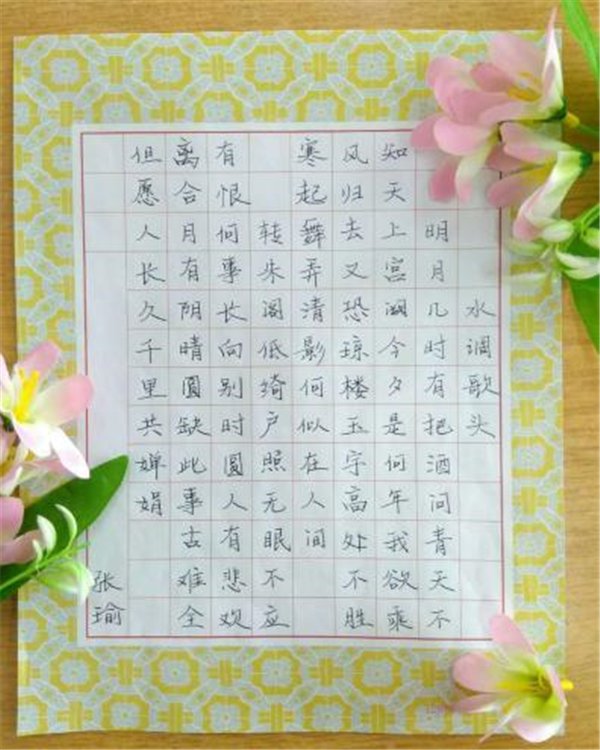 水调歌头
明月几时有把酒问青天不
知天上宫阙今夕是何年我欲乘
风归去又恐琼楼玉宇高处不胜
寒起舞弄清影何似在人间
转朱阁低绮户照无眠不应
有恨何事长向别时圆人有悲欢
离合月有阴晴圆缺此事古难全
但愿人长久千里共婵娟
张瑜